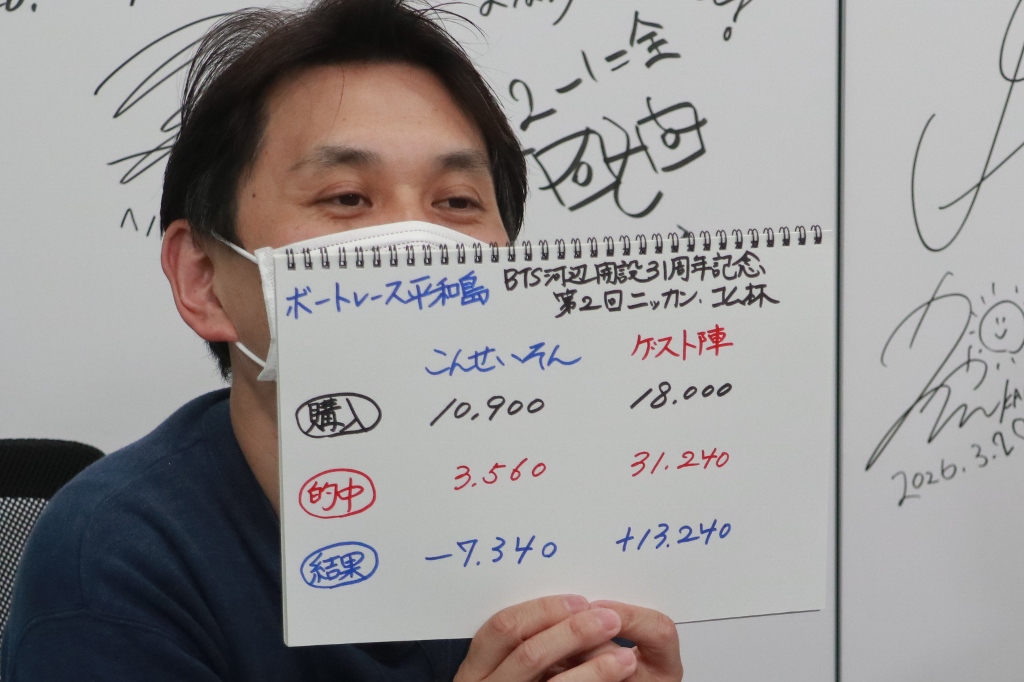 2-1=全
ボートレース平和島
BTS河辺開設31周年記念
第2回ニッカン.コム杯
こんせいそん
ゲスト陣
購入
10,900
18.000
的中
3.560
31.240
結果
-7.340
+13.240
2026.3.20